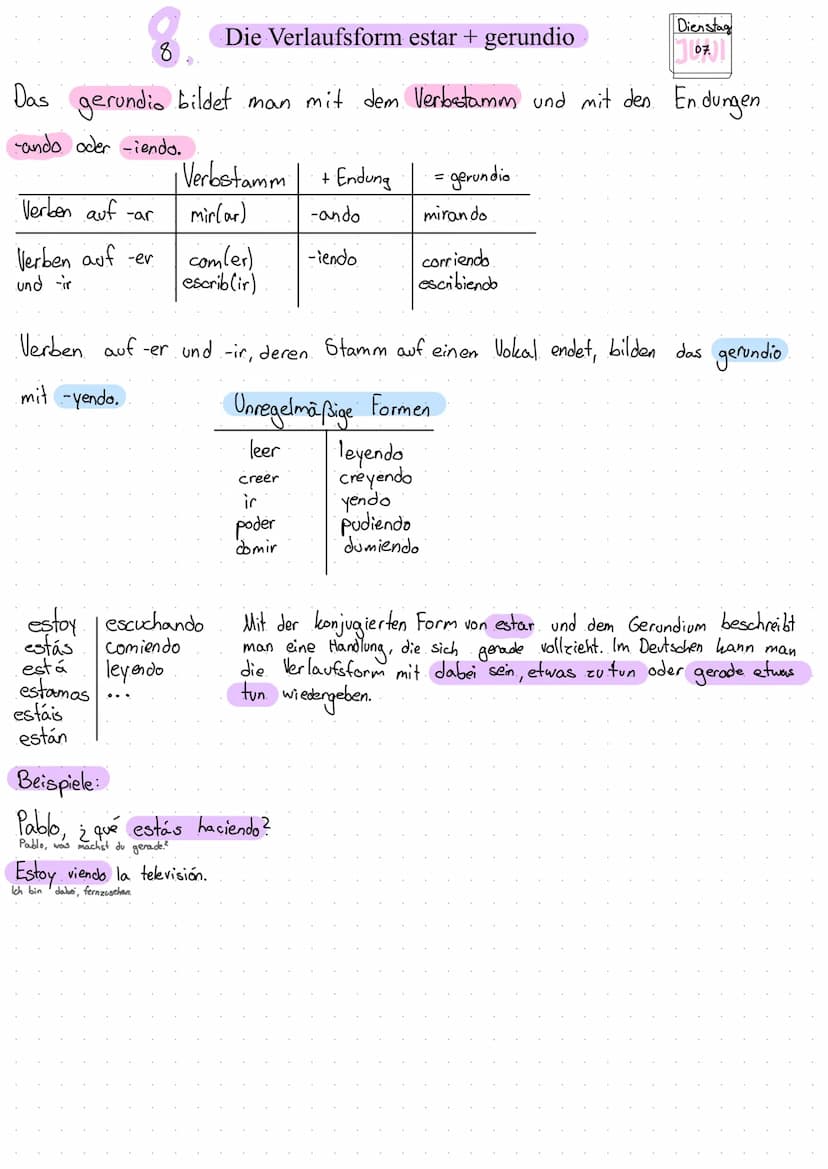 8.
8
Die Verlaufsform estar + gerundio
Dienstag
JUNI
07.
Das gerundio bildet man mit dem Verbstamm und mit den Endungen
-ando oder -iendo.
Verbstamm + Endung = gerundio
Verben auf -ar mir(ar) -ando mirando
Verben auf -er com(er) -iendo corriendo
und -ir escrib(ir) escribiendo
Verben auf -er und -ir, deren Stamm auf einen Vokal endet, bilden das gerundio
mit -yendo.
Unregelmäßige Formen
leer leyendo
creer creyendo
ir yendo
poder pudiendo
domir dumiendo
estoy escuchando
estás comiendo
está leyendo
estamos ...
estáis
están
Mit der konjugierten Form von estar und dem Gerundium beschreibt
man eine Handlung, die sich gerade vollzieht. Im Deutschen kann man
die Verlaufsform mit dabei sein, etwas zu tun oder gerade etwas
tun wiedergeben.
Beispiele:
Pablo, ¿qué estás haciendo?
Pablo, was machst du gerade?
Estoy viendo la televisión.
Ich bin dabei, fernzusehen